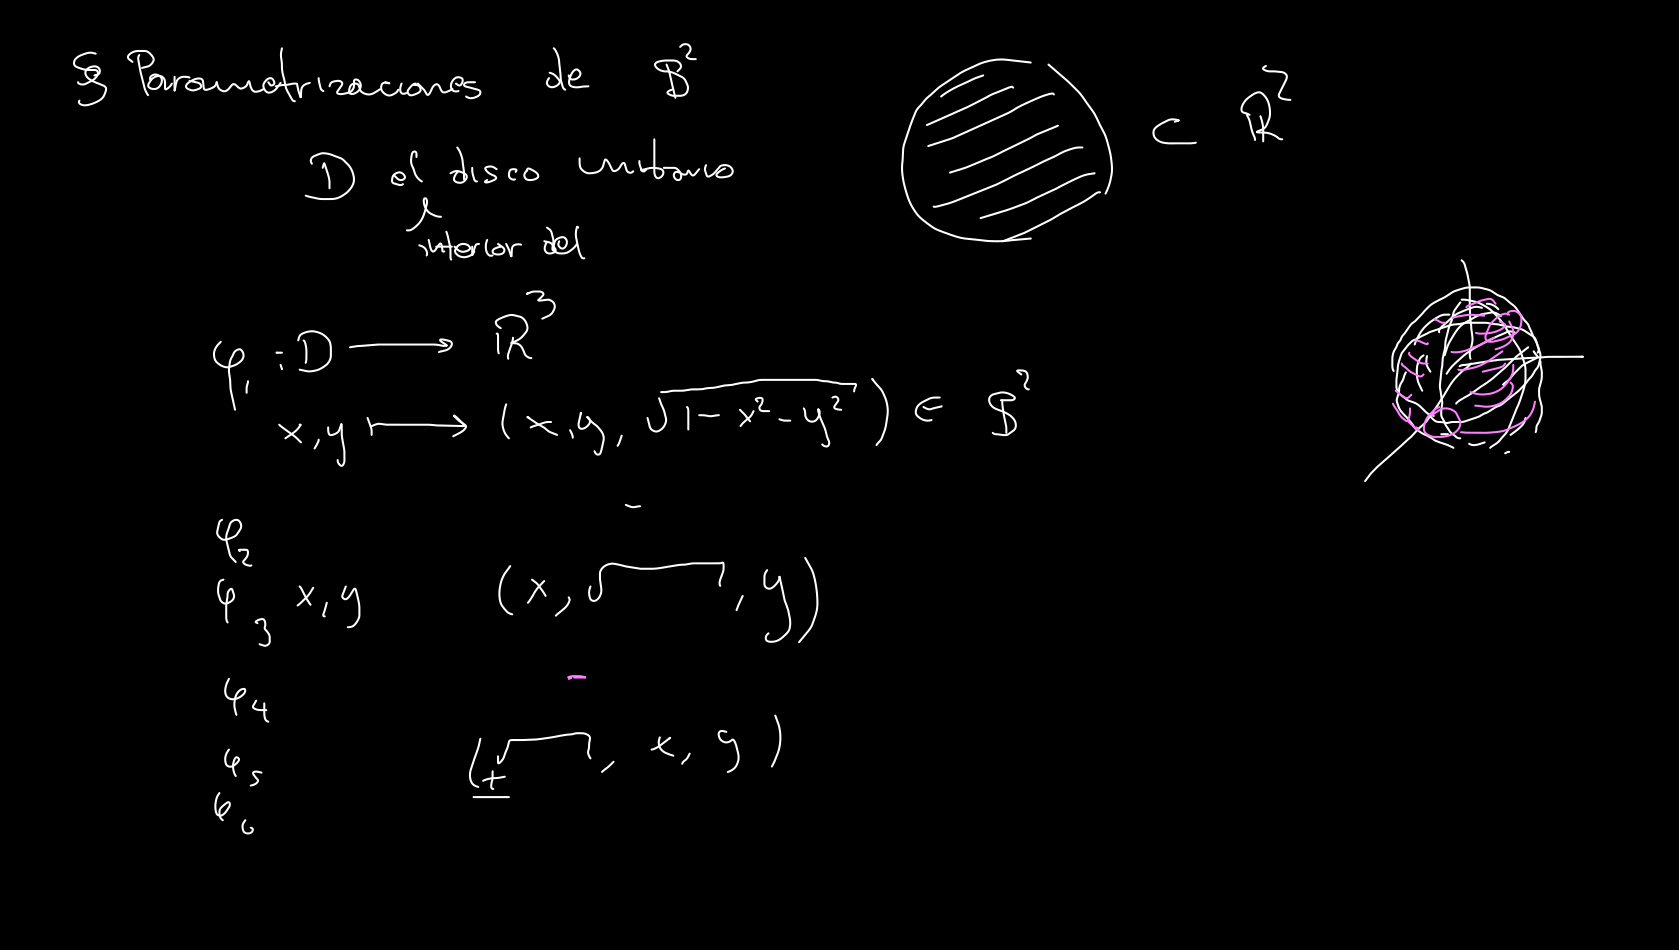 § Parametrizaciones de 𝕊²
D el disco unitario ⊂ ℝ²
interior del
φ₁ : D → ℝ³
x,y ↦ (x,y, √(1-x²-y²)) ∈ 𝕊²
-
φ₂
φ₃ x,y (x, √ , y)
-
φ₄
φ₅ (±√ , x, y)
φ₆